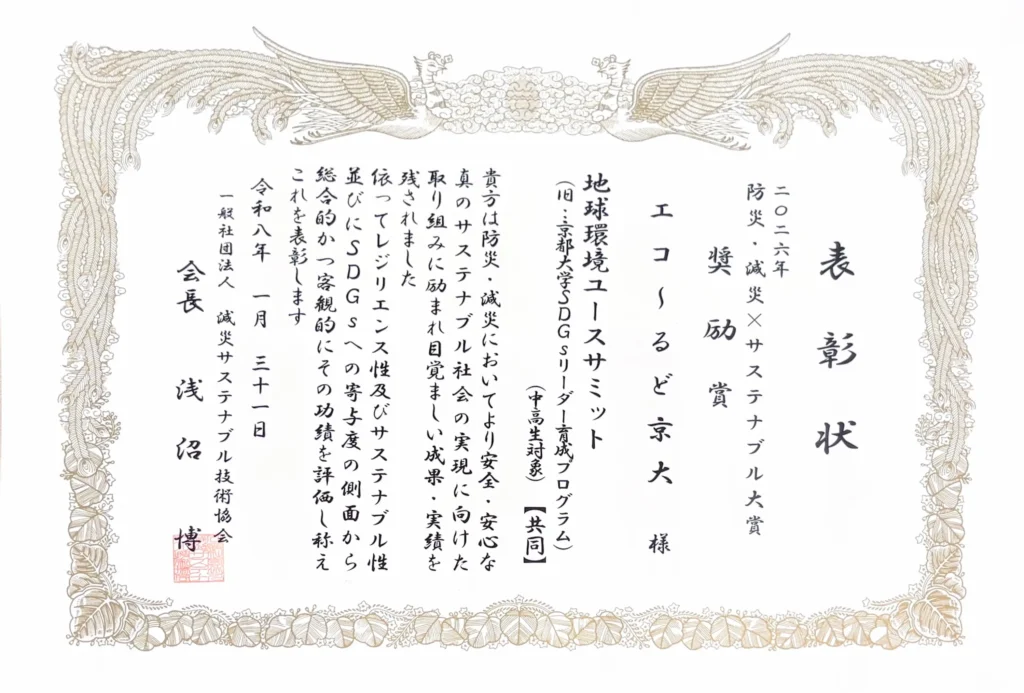 表彰状
二〇二六年
防災・減災×サステナブル大賞
奨励賞
エコ〜るど京大 様
地球環境ユースサミット
(旧:京都大学SDGsリーダー育成プログラム)
(中高生対象)【共同】
貴方は防災・減災においてより安全・安心な
真のサステナブル社会の実現に向けた
取り組みに励まれ目覚ましい成果・実績を
残されました
依ってレジリエンス性及びサステナブル性
並びにSDGsへの寄与度の側面から
総合的かつ客観的にその功績を評価し称え
これを表彰します
令和八年 一月 三十一日
一般社団法人 減災サステナブル技術協会
会長 浅沼 博